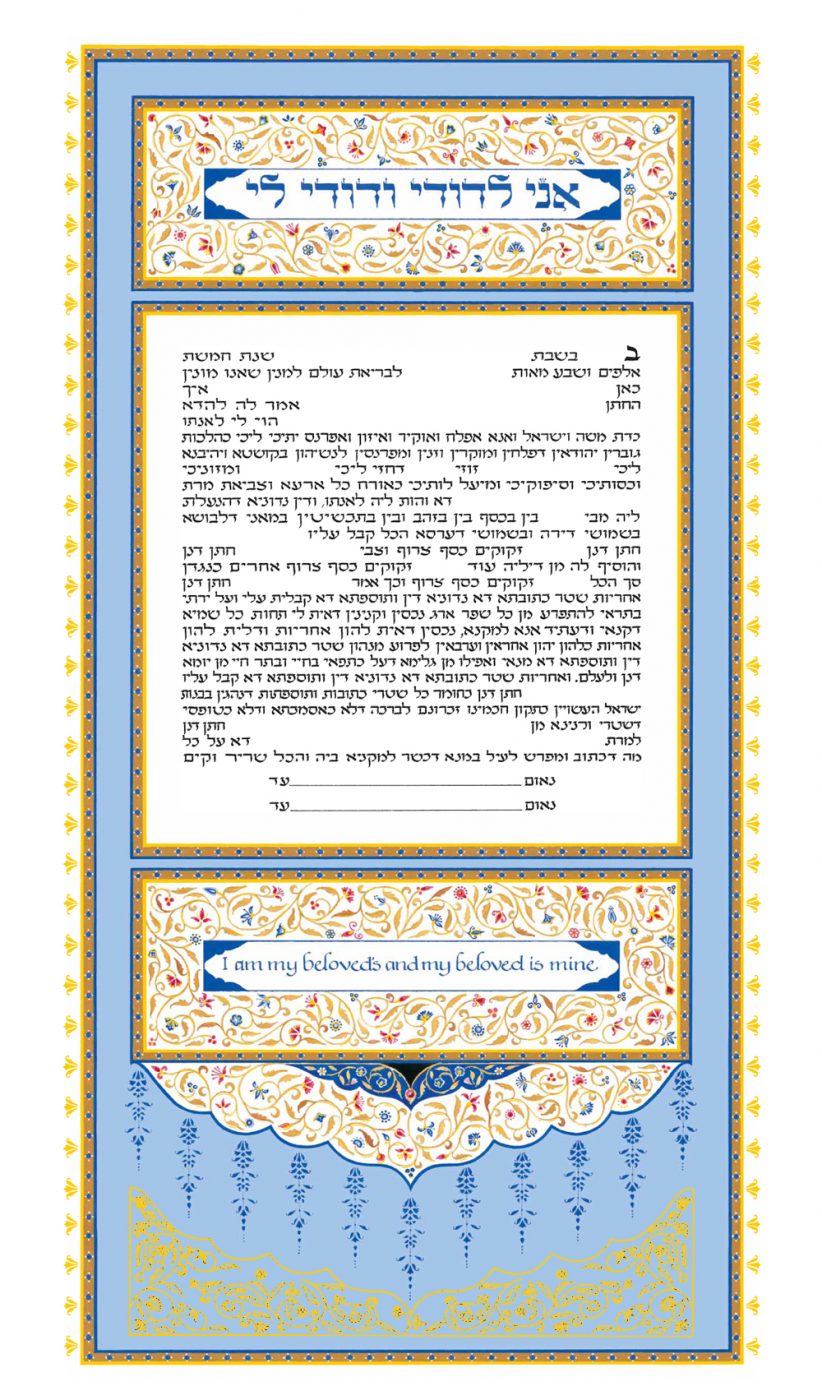 אני לדודי ודודי לי
ב בשבת שנת חמשת
אלפים ושבע מאות לבריאת עולם למנין שאנו מונין
כאן איך
החתן אמר לה להדא
הוי לי לאנתו
כדת משה וישראל ואנא אפלח ואוקיר ואיזון ואפרנס יתיכי ליכי כהלכות
גוברין יהודאין דפלחין ומוקרין וזנין ומפרנסין לנשיהון בקושטא ויהיבנא
ליכי זוזי דחזי ליכי ומזוניכי
וכסותיכי וסיפוקיכי ומיעל לותיכי כאורח כל ארעא וצביאת מרת
דא והות ליה לאנתו, ודין נדוניא דהנעלת
ליה מבי בין בכסף בין בזהב ובין בתכשיטין במאני דלבושא
בשמושי דירה ובשמושי דערסא הכל קבל עליו
חתן דנן זקוקים כסף צרוף וצבי חתן דנן
והוסיף לה מן דיליה עוד זקוקים כסף צרוף אחרים כנגדן
סך הכל זקוקים כסף צרוף וכך אמר חתן דנן
אחריות שטר כתובתא דא נדוניא דין ותוספתא דא קבלית עלי ועל ירתי
בתראי להתפרע מן כל שפר ארג נכסין וקנינין דאית לי תחות כל שמיא
דקנאי ודעתיד אנא למקנא, נכסין דאית להון אחריות ודלית להון
אחריות כלהון יהון אחראין וערבאין לפרוע מנהון שטר כתובתא דא נדוניא
דין ותוספתא דא מנאי ואפילו מן גלימא דעל כתפאי בחיי ובתר חיי מן יומא
דנן ולעלם. ואחריות שטר כתובתא דא נדוניא דין ותוספתא דא קבל עליו
חתן דנן כחומר כל שטרי כתובות ותוספתות דנהגין בבנות
ישראל העשויין כתקון חכמינו זכרונם לברכה דלא כאסמכתא ודלא כטופסי
דשטרי וקנינא מן חתן דנן
למרת דא על כל
מה דכתוב ומפרש לעיל במנא דכשר למקניא ביה והכל שריר וקים
נאום עד
נאום עד
I am my beloved's and my beloved is mine